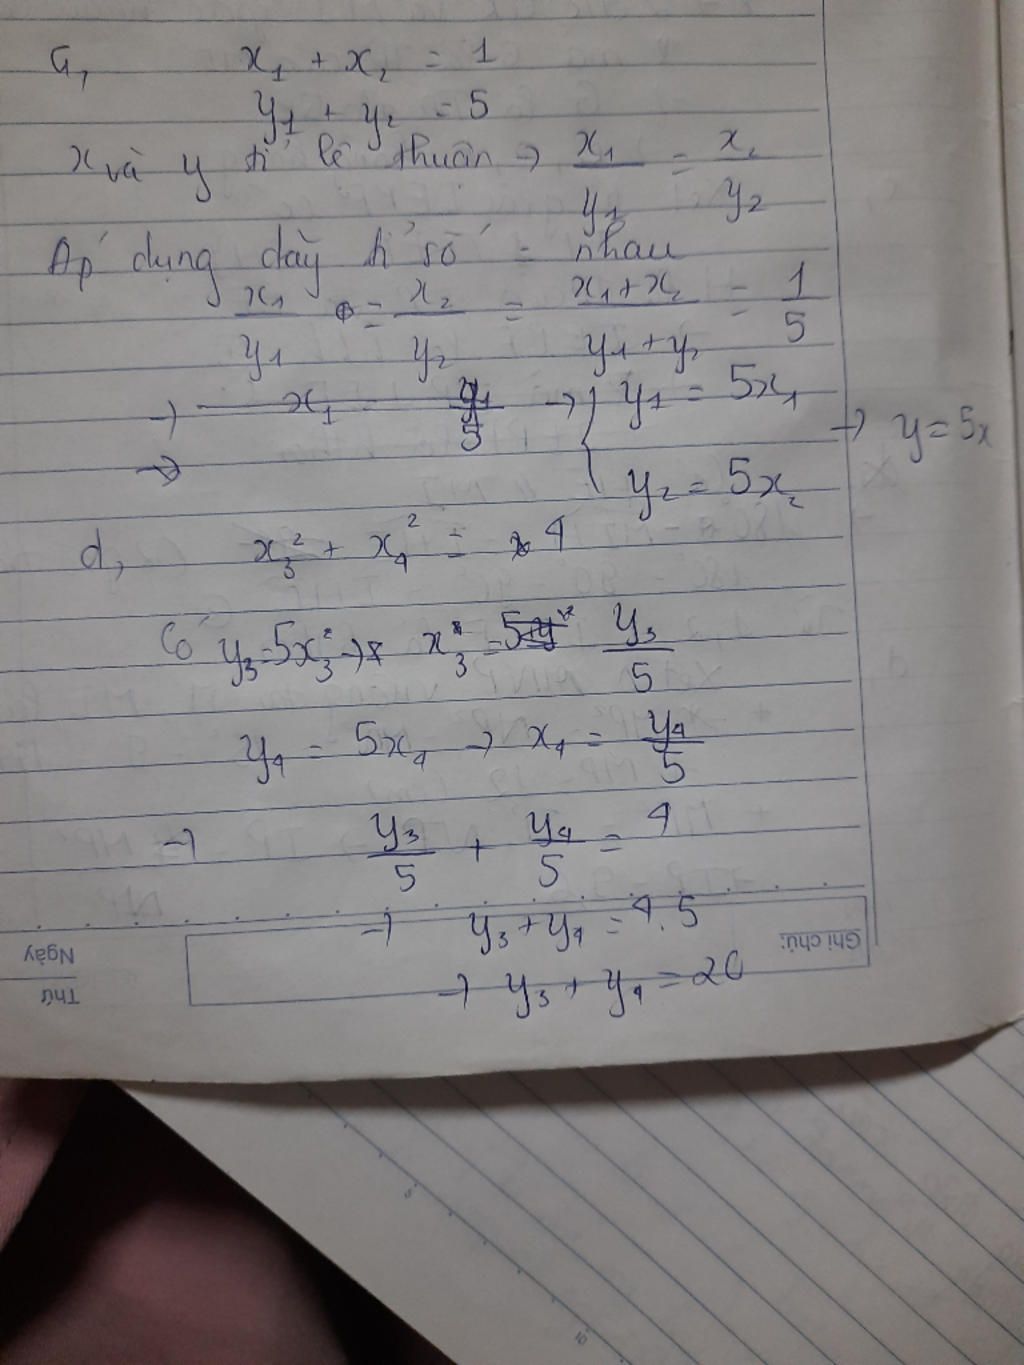 G, x₁ + x₂ = 1
y₁ + y₂ = 5
x và y tỉ lệ thuận → x₁/y₁ = x₂/y₂
Áp dụng dãy tỉ số = nhau
x₁/y₁ = x₂/y₂ = (x₁+x₂)/(y₁+y₂) = 1/5
→ x₁ y₁/5 → { y₁ = 5x₁
→ y₂ = 5x₂ → y = 5x
d, x₃² + x₄² = 4
Có y₃ = 5x₃² → x₃ = y₃/5
y₄ = 5x₄ → x₄ = y₄/5
→ y₃/5 + y₄/5 = 4
→ y₃ + y₄ = 4.5
→ y₃ + y₄ = 20
Ghi chú:
Ngày
Thứ